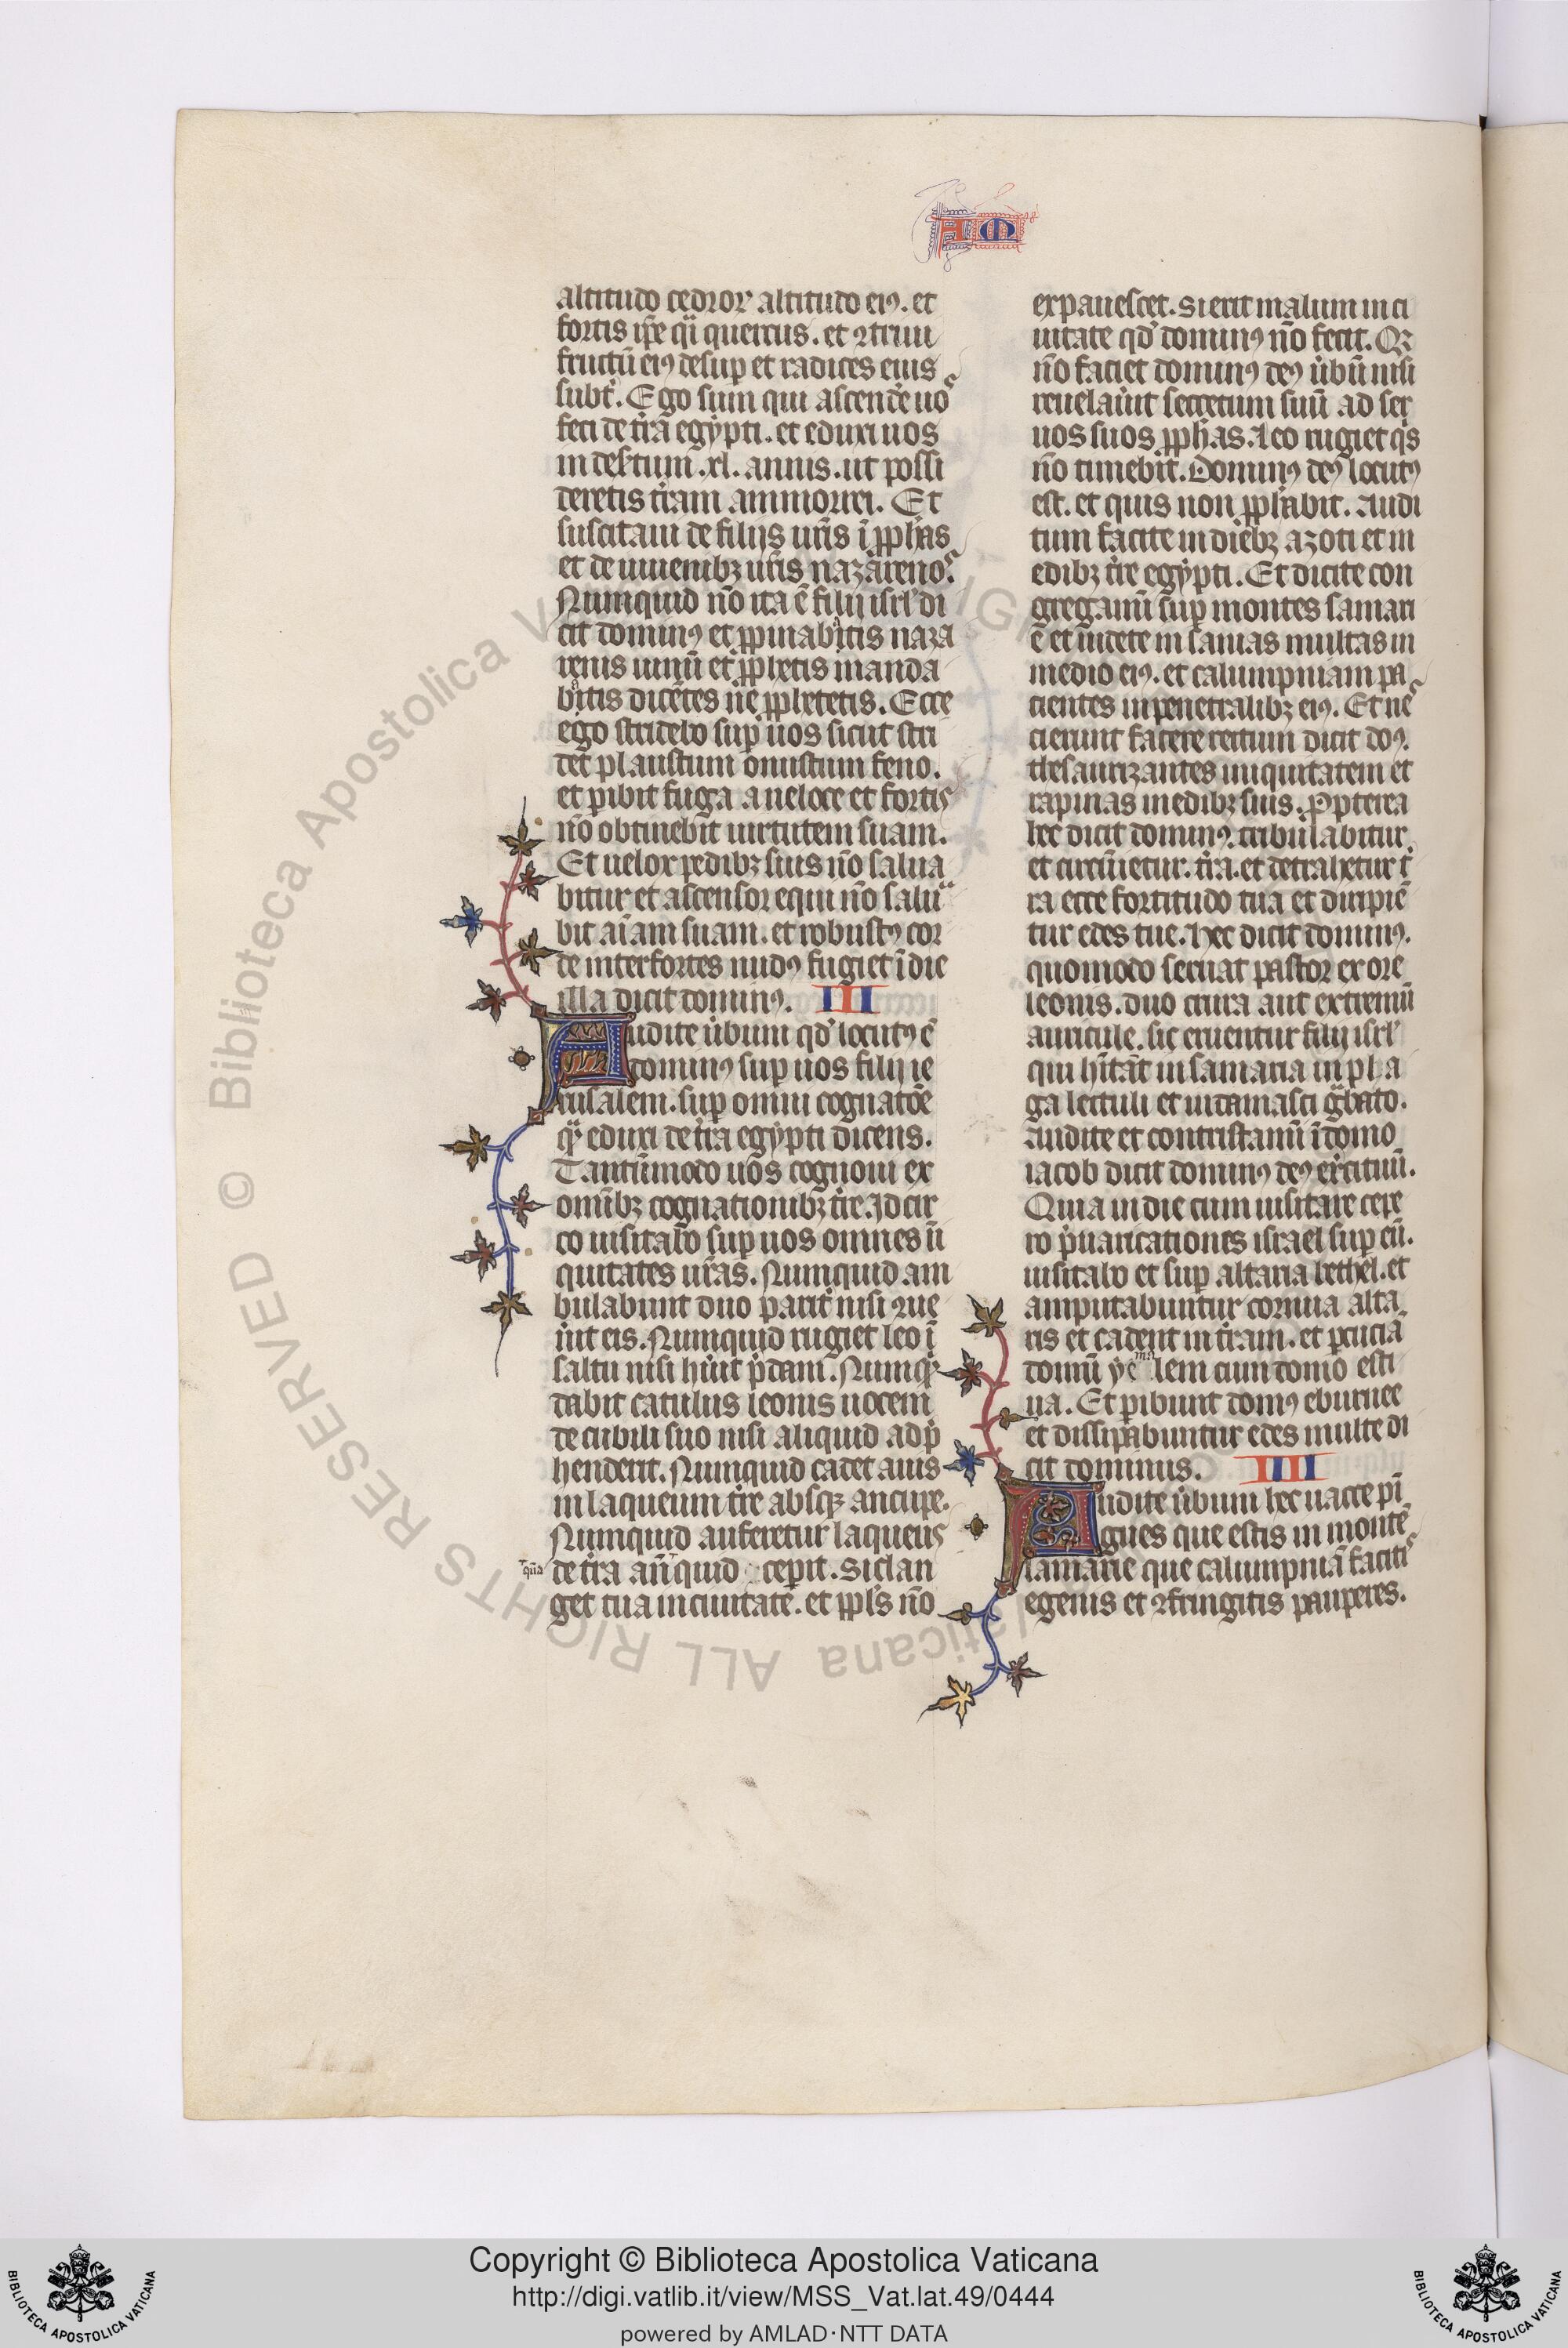 AM
altitudo cedroꝝ altitudo eiꝰ. et
fortis ip̄e qͥi quercus. et ꝯtriui
fructū eiꝰ desuꝑ et radices eius
subt̓. Ego sum qui ascend̓e uos
feci de tr̓ra egypti. et eduxi uos
in des̓tum .xl. annis. ut possi
deretis tr̓ram ammorrei. Et
suscitaui de filijs ur̄is ī ꝓph̓as
et de iuuenibꝫ ur̄is nazarenos.
Numquid nō ita ē filij isrl̓ di
cit dominꝰ et ꝓpinabitis naza
renis uinū et ꝓphetis manda
bitis dicētes ne ꝓphetetis. Ecce
ego stridebo suꝑ uos sicut stri
det plaustrum onustum feno.
et ꝑibit fuga a ueloce et fortis
nō obtinebit uirtutem suam.
Et uelox pedibꝫ suis nō salua
bitur et ascensor equi nō salua
bit aīam suam. et robustꝰ cor
de inter fortes nudꝰ fugiet ī die
illa dicit dominꝰ. III
Audite u̓bum qd̓ locutꝰ ē
dominꝰ suꝑ uos filij ie
rusalem. suꝑ omni cognatōe
qͣ eduxi de tr̓ra egypti dicens.
Tantūmodo uos cognoui ex
omībꝫ cognationibꝫ tr̓re. Idcir
co uisitabo suꝑ uos omnes ii
quitates ur̄as. Numquid am
bulabunt duo parit̓ nisi ꝯue
n̓int eis. Numquid rugiet leo ī
saltu nisi hu̓it p̓dam. Numqͥ
dabit catulus leonis uocem
de cubili suo nisi aliquid adp̓
henderit. Numquid cadet auis
in laqueum tr̓re absqꝫ aucupe.
Numquid auferetur laqueus
de tr̓ra an̄quid ceperit. Si clan
get tua in ciuitate. et ꝓpl̓s nō
expauescet. Si erit malum in ci
uitate qd̓ dominꝰ nō fecit. Qꝛ
nō faciet dominꝰ deꝰ u̓bū nisi
reuelau̓it secretum suū ad ser
uos suos ꝓph̓as. Leo rugiet qͥs
nō timebit. Dominꝰ deꝰ locutꝰ
est. et quis non ꝓph̓abit. Audi
tum facite in diebꝫ azoti et in
edibꝫ tr̓re egypti. Et dicite con
gregamī suꝑ montes samari
e et uidete insanias multas in
medio eiꝰ. et calumpniam pa
cientes in penetralibꝫ eiꝰ. Et nes
cierunt facere rectum dicit dōs.
thesaurizantes iniquitatem et
rapinas in edibꝫ suis. Ꝓpterea
hec dicit dominꝰ. tribulabitur
et circūietur. tr̓ra. et detrahetur
ra ecce fortitudo tua et diripiē
tur edes tue. Hec dicit dominꝰ.
quomodo seruat pastor ex ore
leonis. duo crura aut extremū
auricule. sic eruentur filij isrl̓
qui hītāt in samaria in pla
ga lectuli et in damasci gͣbato.
Audite et contestamī ī domo
iacob dicit dominꝰ deꝰ ex̓cituū.
Quia in die cum uisitare cepe
ro p̓uaricationes israel suꝑ eū.
uisitabo et suꝑ altaria bethel. et
amputabuntur cornua alta
ris et cadent in tr̓ram. et ꝑcuciā
domū yemalem cum domo esti
ua. Et ꝑibunt domꝰ eburnee
et dissipabuntur edes multe di
cit dominus. IIII
Audite u̓bum hec uacce pī
gues que estis in monte
samarie que calumpniā facitis
egenis et ꝯfringitis pauperes.
Copyright © Biblioteca Apostolica Vaticana
http://digi.vatlib.it/view/MSS_Vat.lat.49/0444
powered by AMLAD·NTT DATA
BIBLIOTECA APOSTOLICA VATICANA
BIBLIOTECA APOSTOLICA VATICANA
© Biblioteca Apostolica Vaticana ALL RIGHTS RESERVED